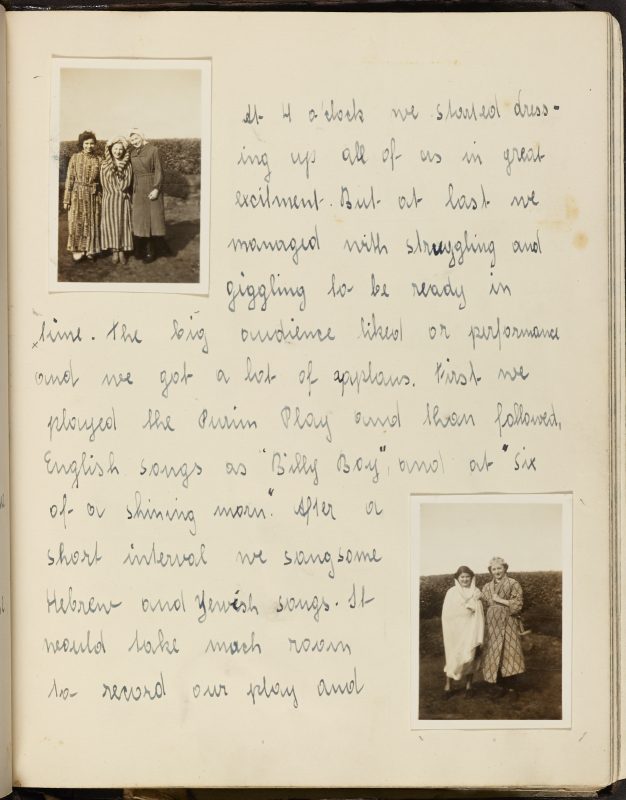 At 4 o'clock we started dress-
ing up all of us in great
excitment. But at last we
managed with struggling and
giggling to be ready in
time. The big audience liked or performance
and we got a lot of applaus. First we
played the Purim Play and than followed,
English songs as "Billy Boy", and at "Six
of a shining morn". After a
short interval we sang some
Hebrew and Yewish songs. It
would take mach room
to record our play and